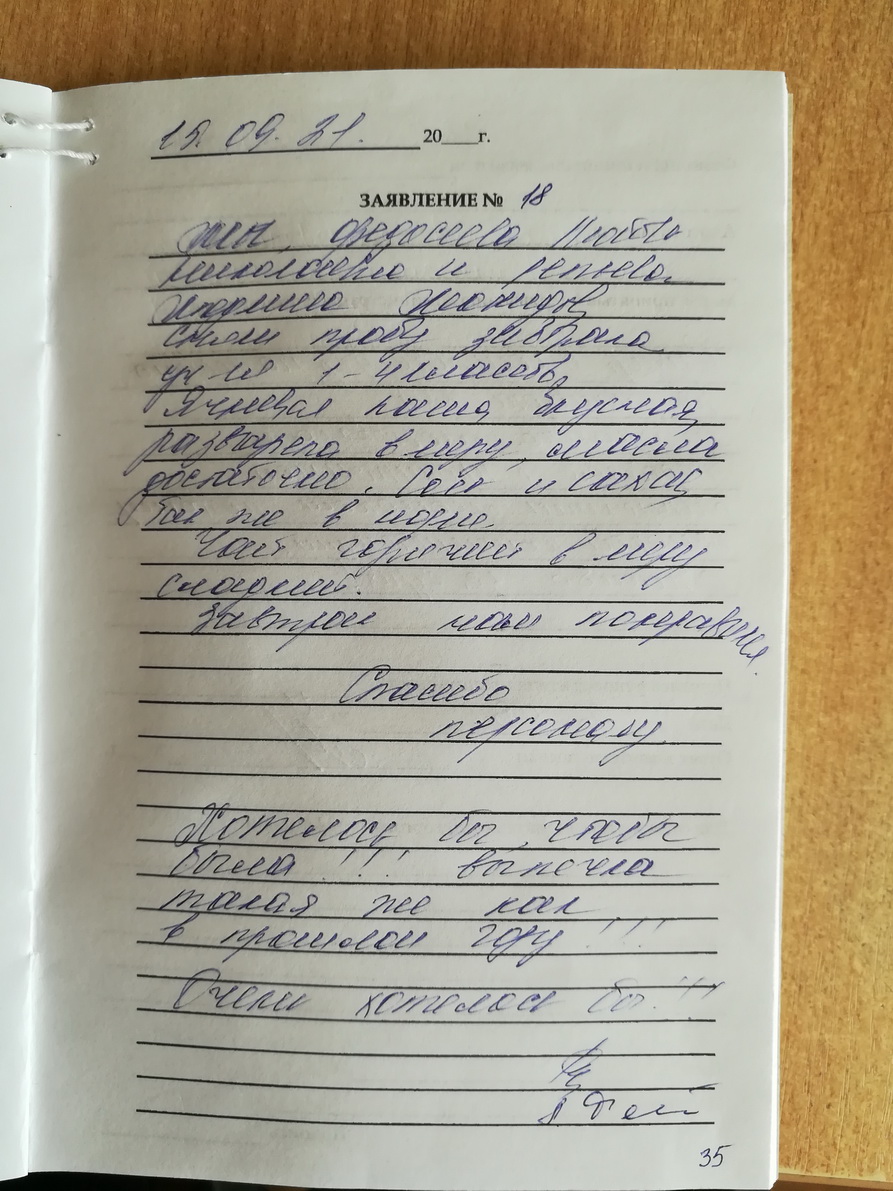 15. 09. 21. 20___г.
ЗАЯВЛЕНИЕ № 18
Мы, Федосеева Любовь
Николаевна и Репьева
Леонидов
сняли пробу завтрака
уч-ся 1-4 классов,
Ячневая каша вкусная,
разварена в меру, масла
достаточно. Соль и сахар
так же в норме.
Чай горячий в меру
сладкий.
Завтрак нам понравился
Спасибо
персоналу
Хотелось бы, чтобы
была!!! выпечка
такая же как
в прошлом году!!!
Очень хотелось бы!!!
35